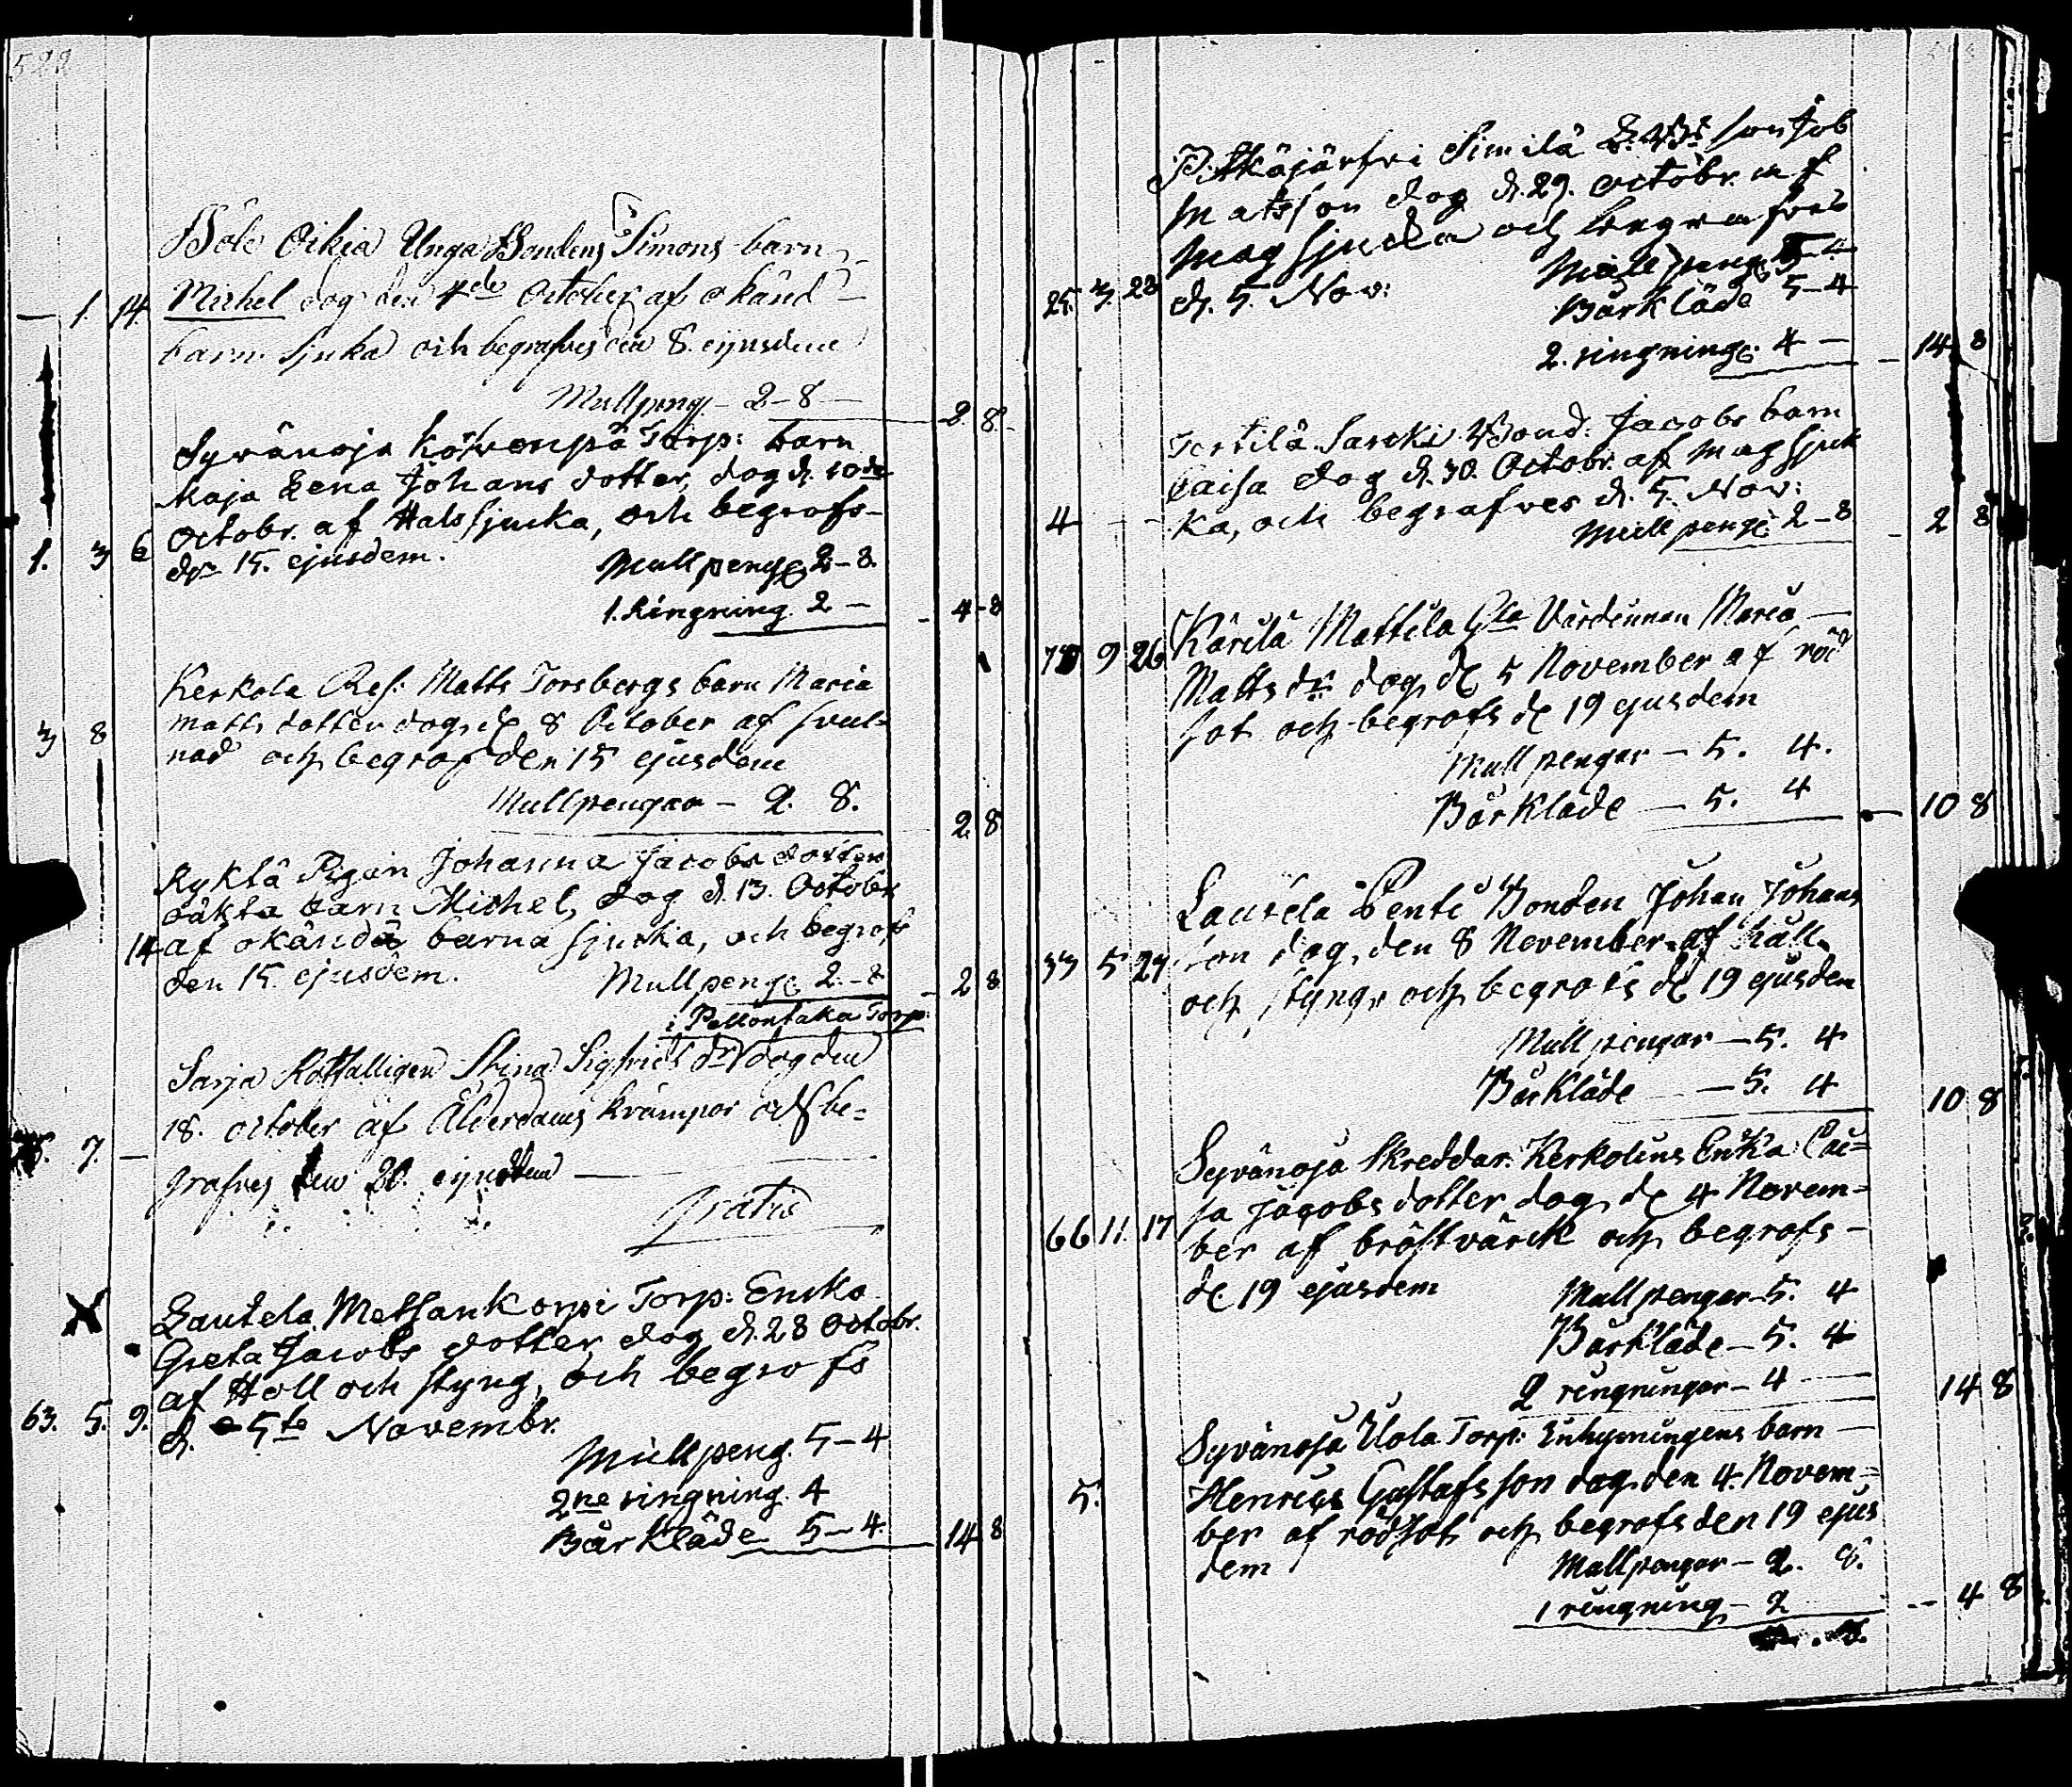 522
Böle Oikia Unga Bondens Simons barn
— 1. 14. Michel dog den 1de October af okänd
barn Sjuka och begrafves den 8. ejusdem
Mullpeng. 2-8 — 2. 8.
Syvänoja Torp: barn
Maja Lena Johans dotter, dog d. 10de
Octobr. af Halssjucka, och begrofs-
1. 3 6 den 15. ejusdem. Mullpeng 2-8.
1. Ringning 2 — 4-8
Kerkola Matts Torsbergs barn Maria
3 8 matts dotter dog d 8 October af svul-
nad och begrof den 15 ejusdem
Mullpengar — 2. 8. 2 8
Ryktä Pigan Johanna Jacobs dotters
oäkta barn Michel, dog d. 13. Octobr
14 af okända barna sjucka, och begrofs
den 15. ejusdem. Mullpeng 2-8 2 8
i Pellontaka Torp:
Sarja Rotfalligen Stina Sigfrids dr dog den
18. october af Ålderdoms krämpor och be-
7. — grafves den 20. ejusdem —
gratis
X Lautela Metsankorpi Torp: Encka
Greta Jacobs dotter dog d. 28 octobr.
af Håll och styng, och begrofs
63. 5. 9. d. 5te Novembr.
Mullpeng. 5-4
2ne ringning. 4
Bårkläde 5-4. 14 8
Pitkäjärfvi Similä son Job
Matsson dog d. 29. octobr. af
mag sjucka och begrafves
25. 3. 23 d. 5. Nov: Mullpeng 5-4
Bårkläde 5-4
2. ringning. 4 — 14 8
Tortilä Sarcki Bond. Jacobs barn
Caisa dog d. 30. Octobr. af magsjuc
4 - - ka, och begrafves d. 5. Nov:
Mullpeng 2-8 2 8
9 26 Kärilä Mattila Gla Värdinnan Maria
Matts dr dog d 5 November af röd
sot och begrofs d 19 ejusdem
Mullpengar — 5. 4.
Bårkläde — 5. 4 10 8
Lautela Penti Bonden Johan Johans
33 5 27 son dog den 8 November af håll
och styng och begrofs d 19 ejusdem
Mullpengar — 5. 4
Bårkläde — 5. 4 10 8
Syvänoja Skreddar. Kerkolins Enka Cai=
sa Jacobsdotter dog d 4 Novem=
66 11. 17 ber af bröstvärck och begrofs-
d 19 ejusdem Mullpengar 5. 4
Bårkläde — 5. 4
2 ringningar — 4 — 14 8
Syvänoja Uola Torp: Inhysningens barn
5. Henrics Gustafsson dog den 4. Novem=
ber af rödsot och begrofs den 19 ejus
dem Mullpengar — 2. 8.
1 ringning — 2 4 8